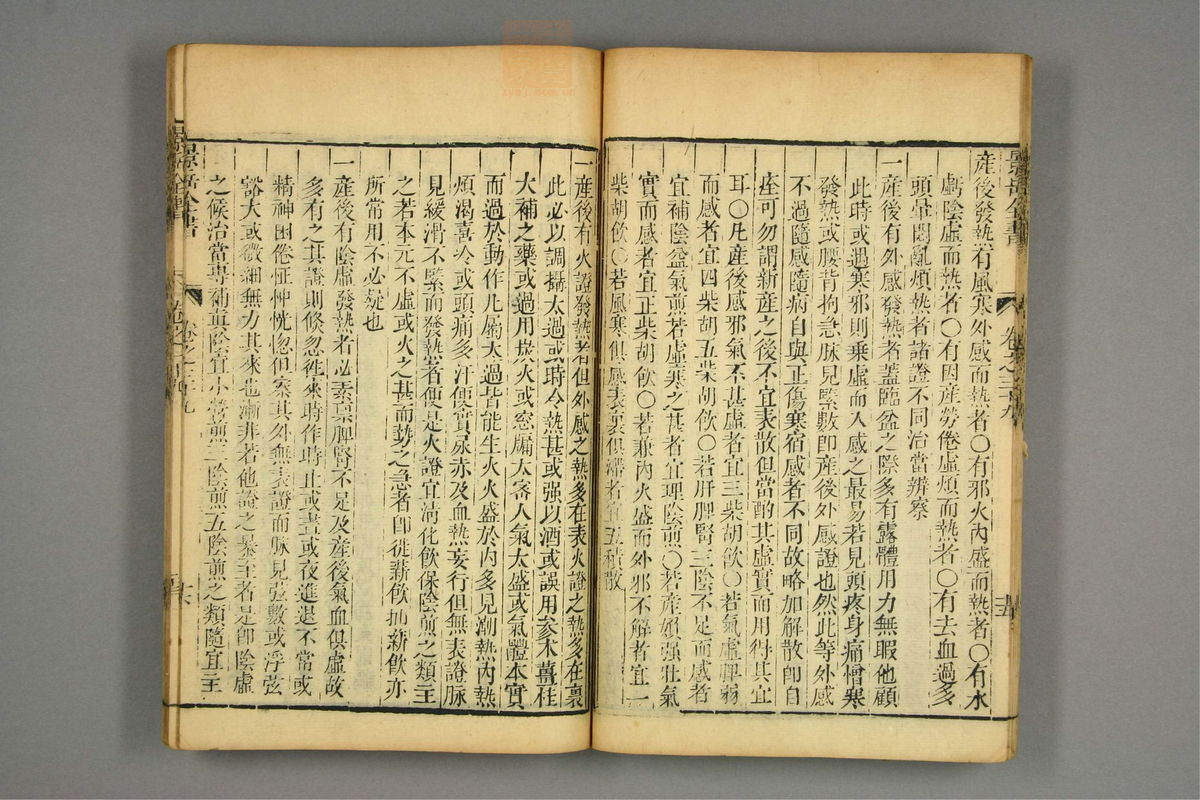 景岳全書
卷之三十九
產後發熱有風寒外感而熱者〇有邪火內盛而熱者〇有水
虧陰虛而熱者〇有因產勞倦虛煩而熱者〇有去血過多
頭暈悶亂煩熱者諸證不同治當辨察
一產後有外感發熱者蓋臨盆之際多有露體用力無暇他顧
此時或遇寒邪則乗虛而入感之最易若見頭疼身痛憎寒
發熱或腰背拘急脉見緊數卽產後外感證也然此等外感
不過隨感隨病自與正傷寒宿感者不同故略加解散卽自
痊可勿謂新產之後不宜表散但當酌其虛實而用得其宜
耳〇凡產後感邪氣不甚虛者宜三柴胡飲〇若氣虛脾弱
而感者宜四柴胡五柴胡飲〇若肝脾腎三陰不足而感者
宜補陰益氣煎若虛寒之甚者宜理陰煎〇若產婦强壯氣
實而感者宜正柴胡飲〇若兼內火盛而外邪不解者宜一
柴胡飲〇若風寒俱感表裏俱滯者宜五積散
一產後有火證發熱者但外感之熱多在表火證之熱多在裏
此必以調攝太過或時令熱甚或强以酒或誤用參术薑桂
大補之藥或過用炭火或窓牖太密人氣太盛或氣體本實
而過於動作凡屬太過皆能生火火盛於內多見潮熱內熱
煩渴喜冷或頭痛多汗便實尿赤及血熱妄行但無表證脉
見緩滑不緊而發熱者便是火證宜淸化飲保陰煎之類主
之若本元不虛或火之甚而熱之急者卽徙薪飲抽薪飲亦
所常用不必疑也
一產後有陰虛發熱者必素禀脾腎不足及產後氣血俱虛故
多有之其證則倐忽徃來時作時止或晝或夜進退不常或
精神困倦怔忡恍惚但察其外無表證而脉見弦數或浮弦
豁大或微細無力其來也漸非若他證之暴至者是卽陰虛
之候治當專補眞陰宜小營煎三陰煎五陰煎之類隨宜主
景岳全書